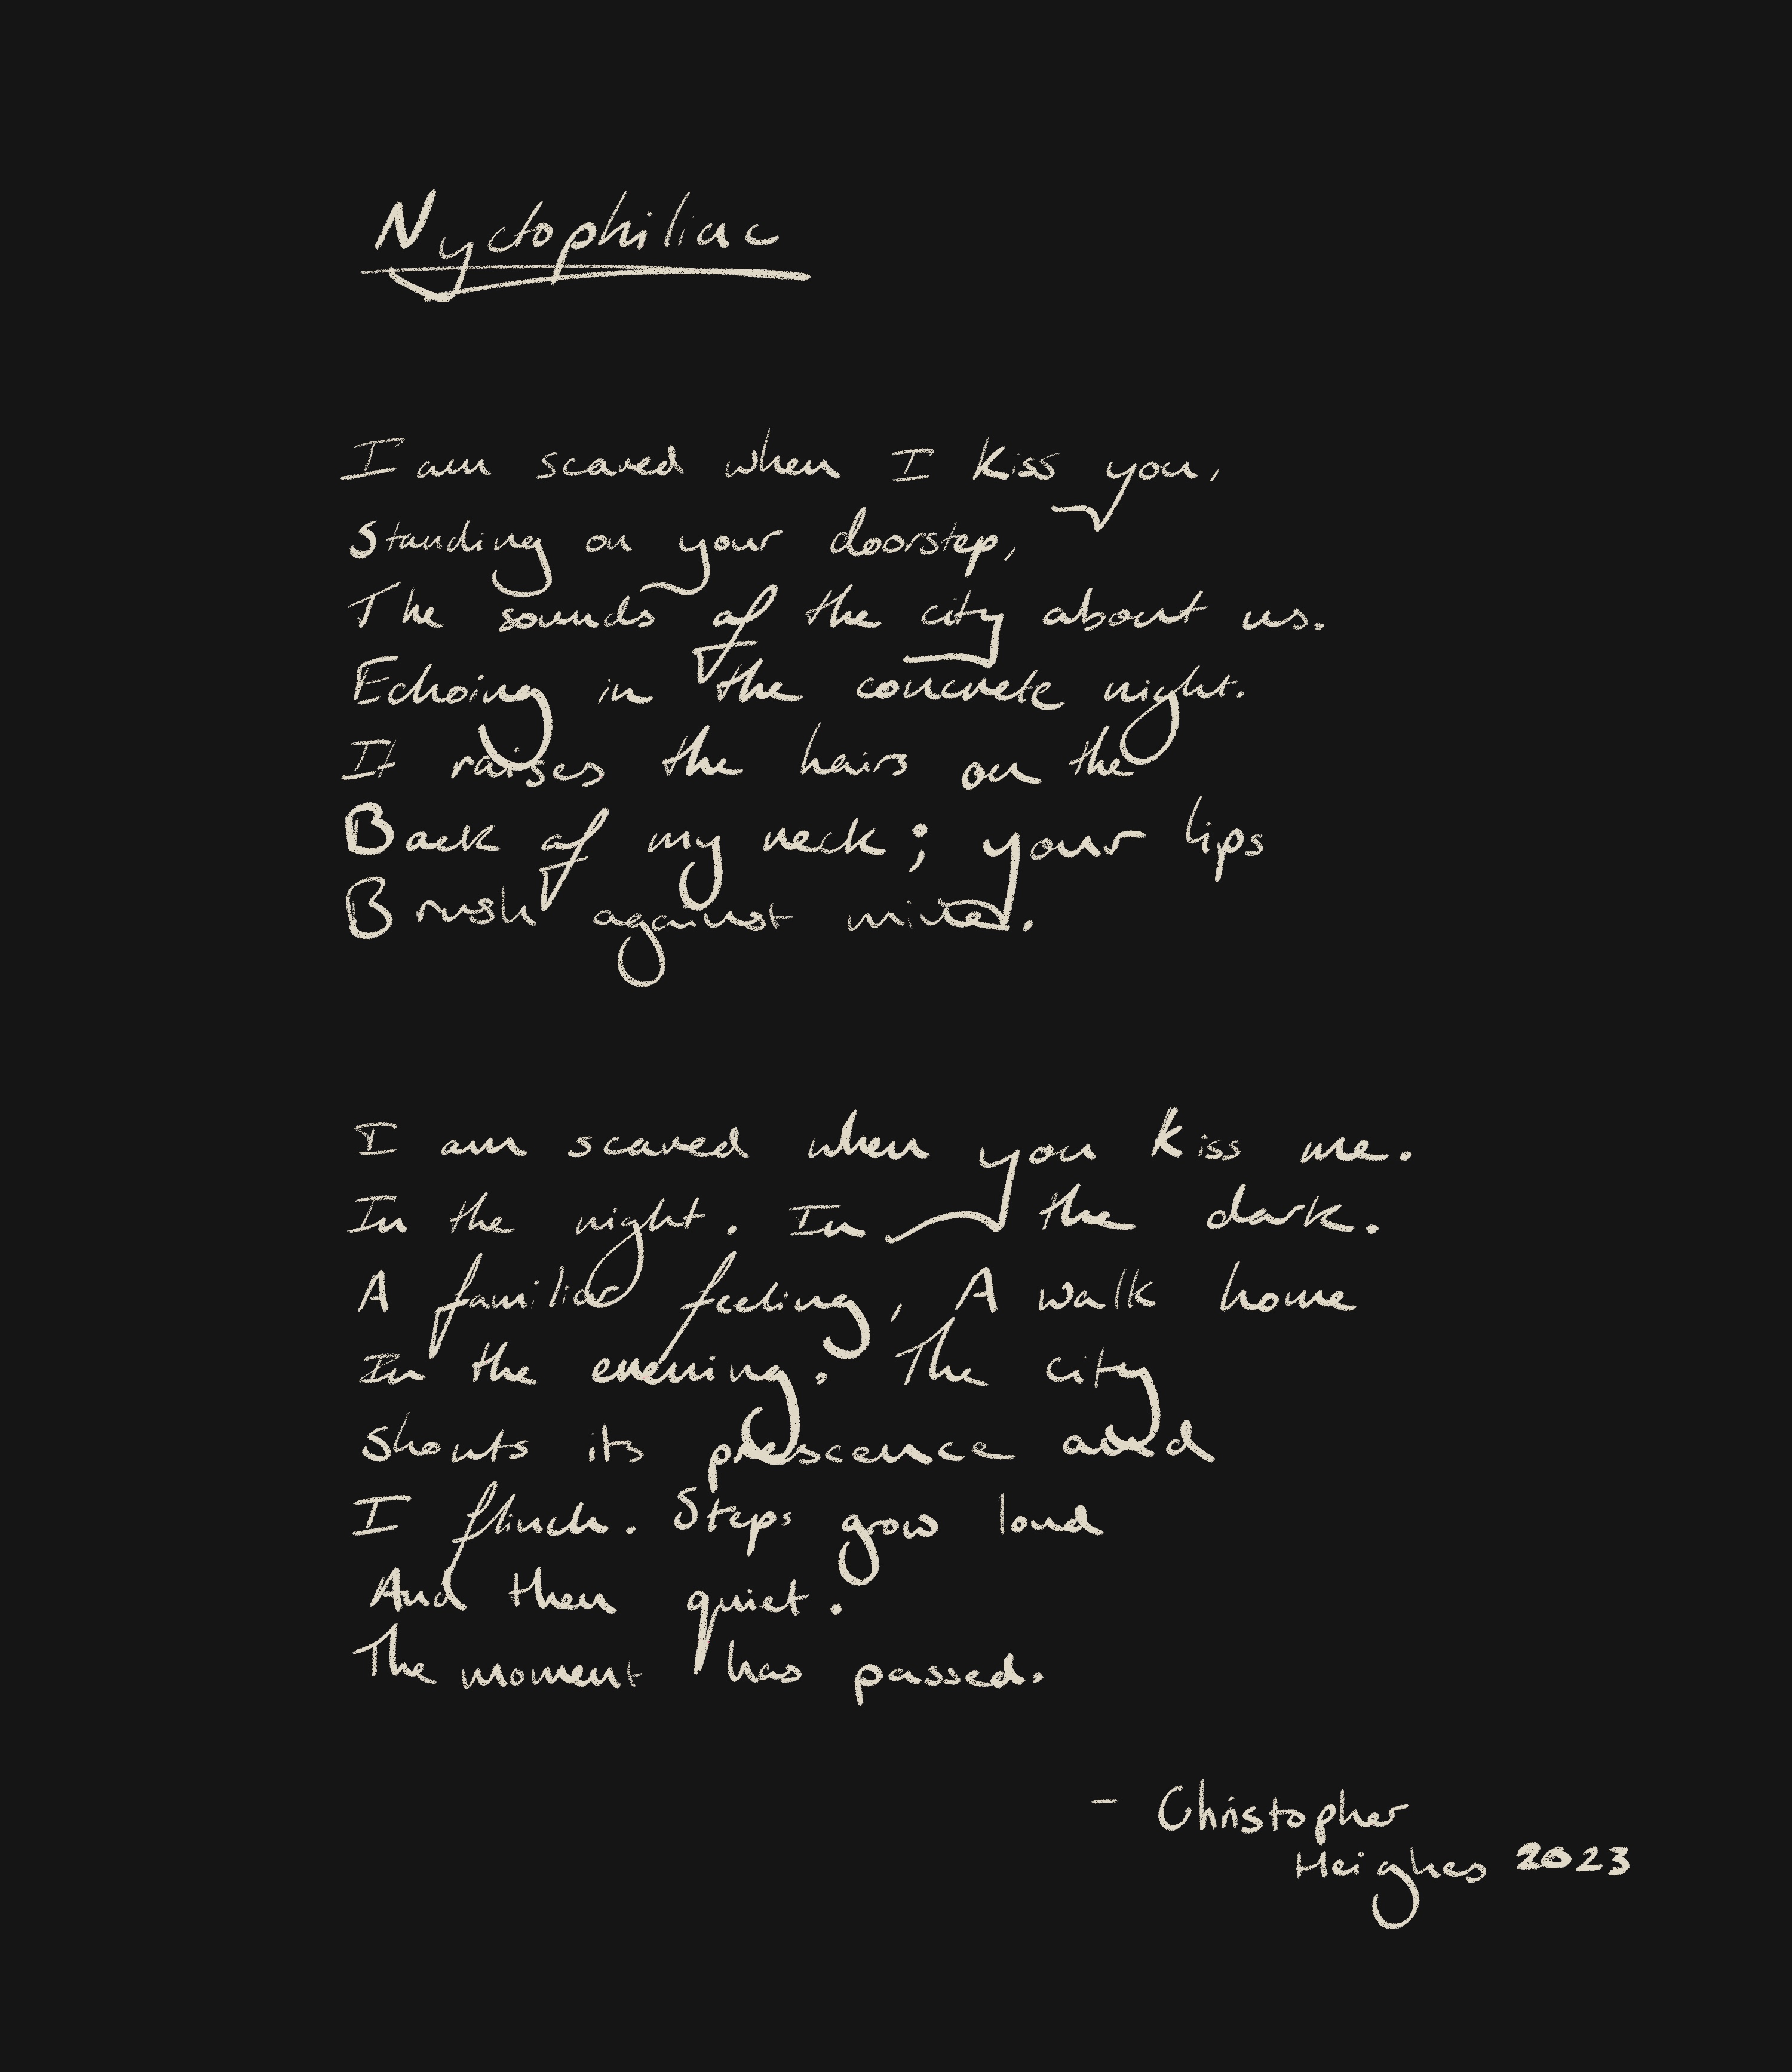 Nyctophiliac
I am scared when I kiss you,
Standing on your doorstep,
The sounds of the city about us.
Echoing in the concrete night.
It raises the hairs on the
Back of my neck; your lips
Brush against mine.
I am scared when you kiss me.
In the night. In the dark.
A familiar feeling, A walk home
In the evening. The city
Shouts its prescence and
I flinch. Steps grow loud
And then quiet.
The moment has passed.
- Christopher
Heighes 2023